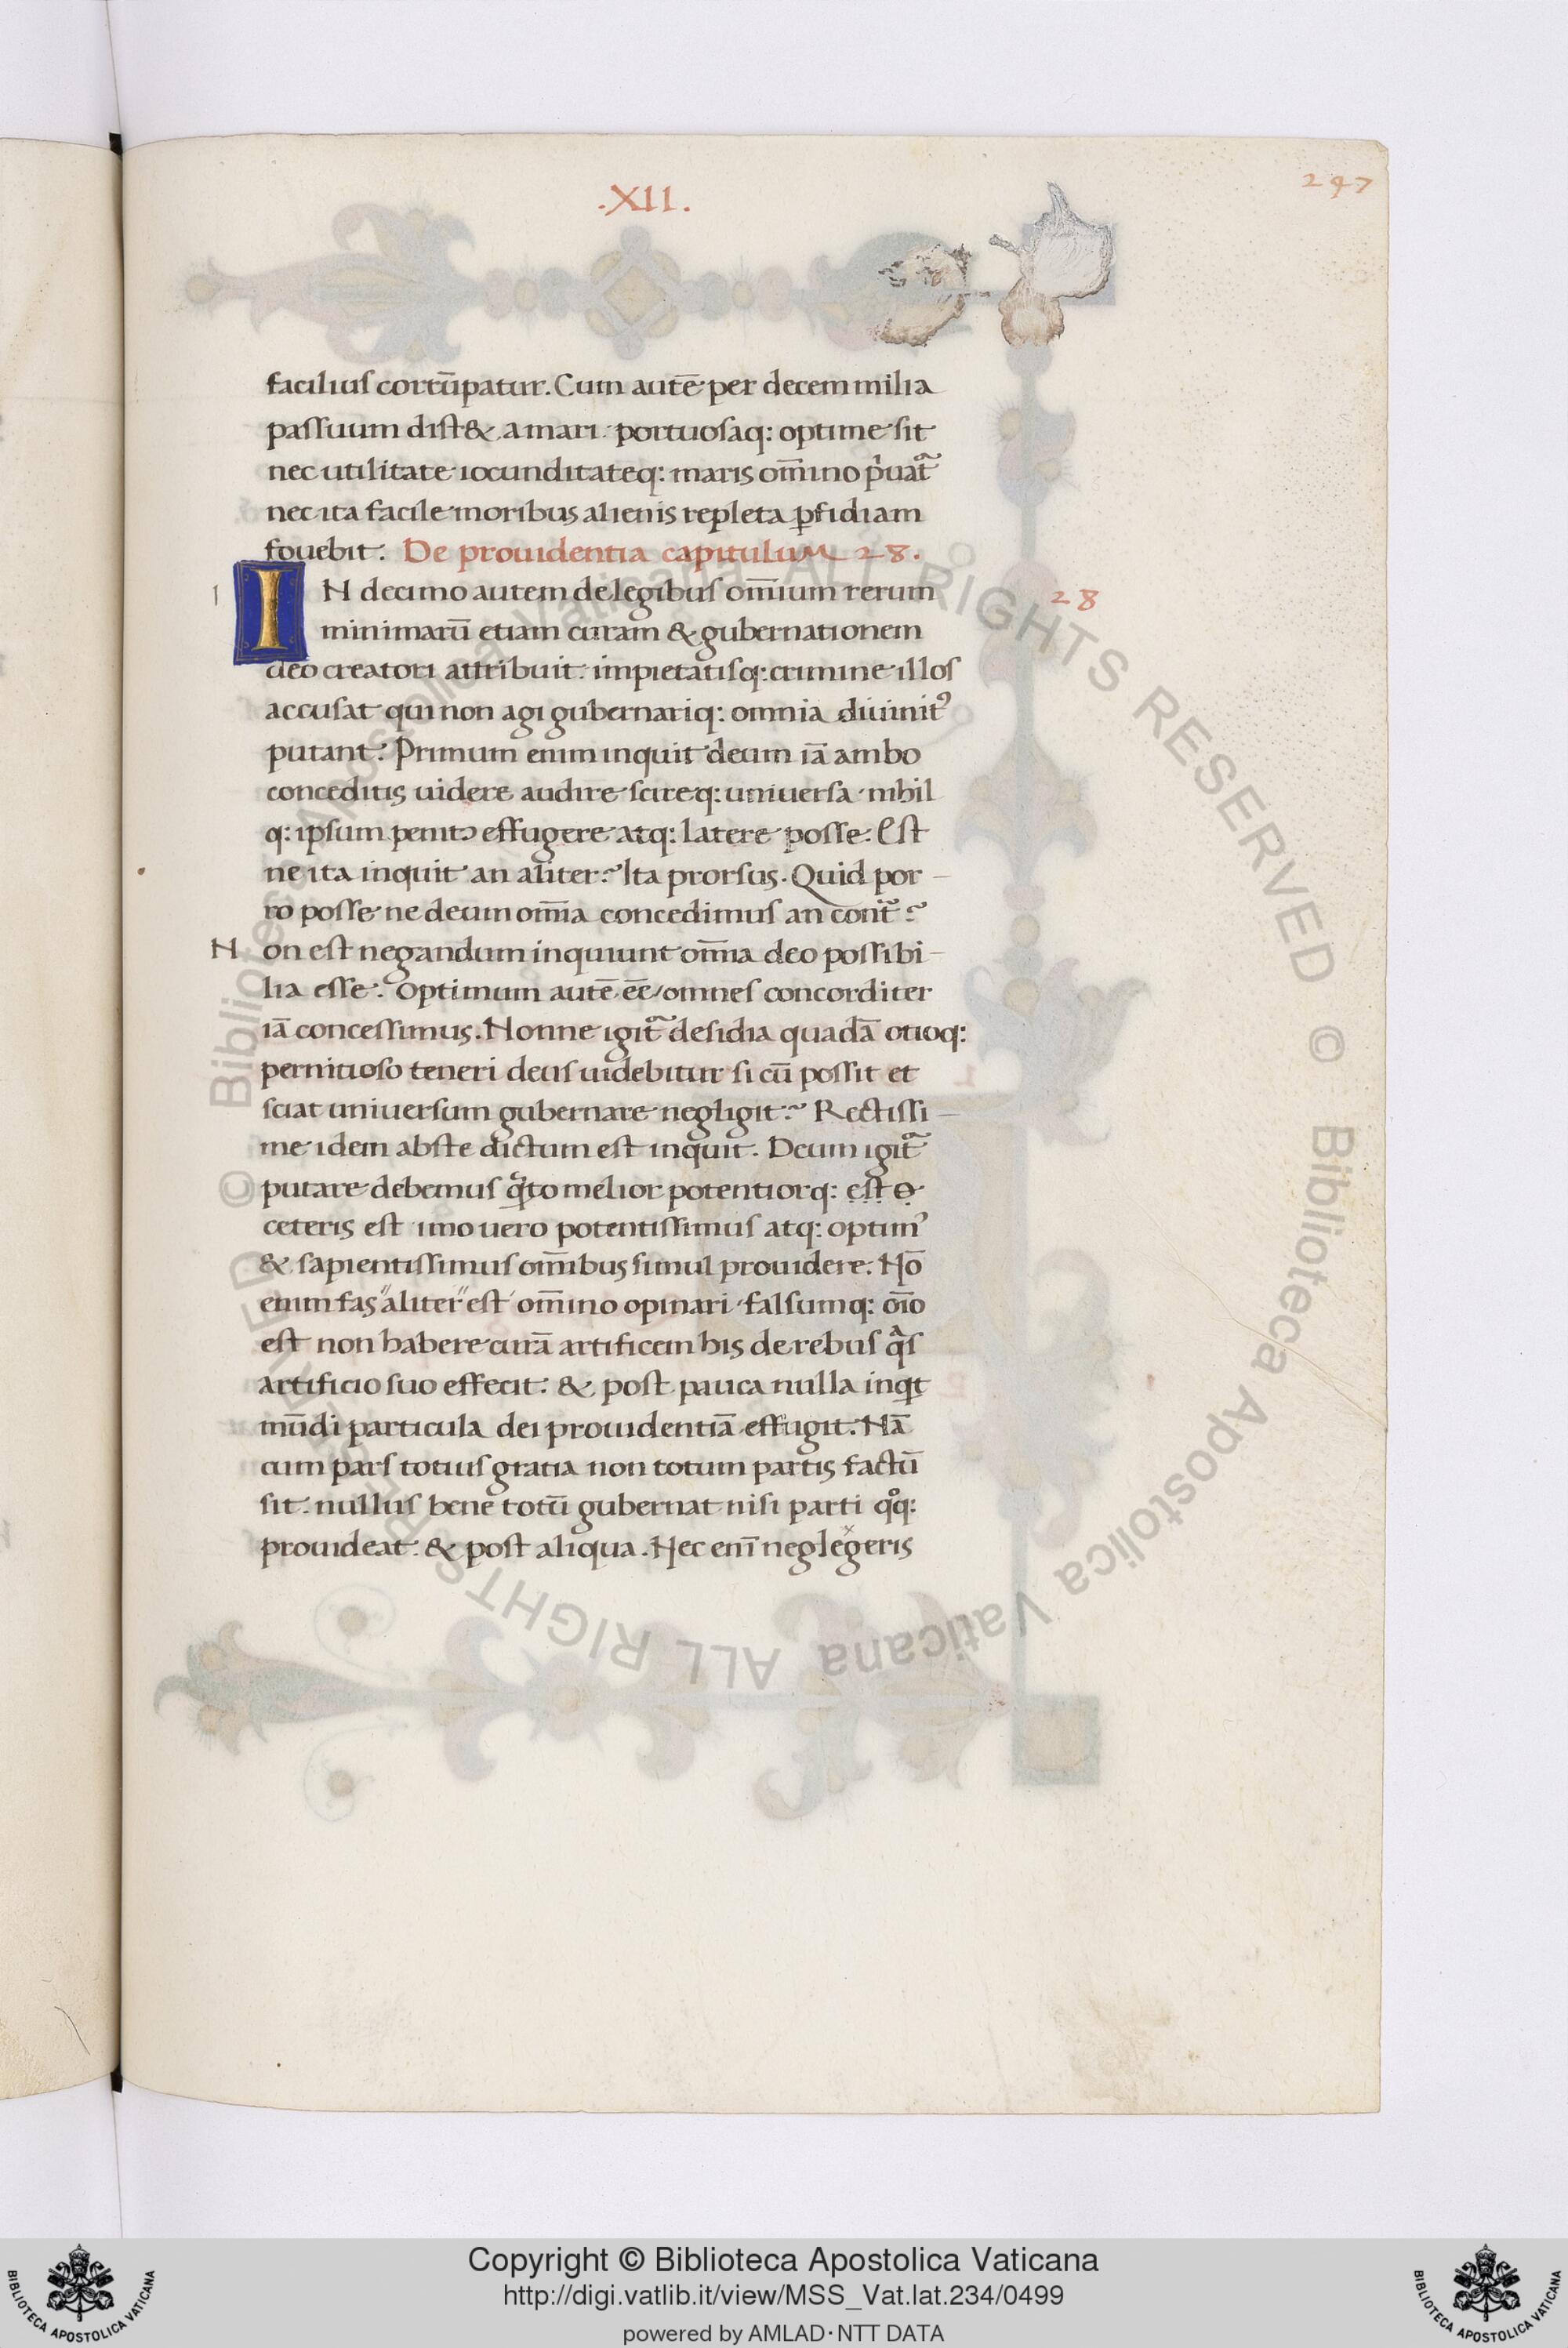 .XII.
247
faciliuſ corrūpatur. Cum autē per decem milia
paſſuum diſt& a mari. portuoſaq: optime ſit
nec utilitate iocunditateq: maris om̅ino p̓uat᷑
nec ita facile moribus alienis repleta ꝑfidiam
fouebit. De prouidentia capitulum 28.
28
I
IN decimo autem de legibuſ om̅ium rerum
minimarū etiam curam & gubernationem
deo creatori attribuit. impietatiſq: crimine illoſ
accuſat qui non agi gubernariq: omnia diuinit᾽
putant. Primum enim inquit deum iā ambo
conceditis uidere audire ſcireq: uniuerſa nihil
q: ipſum penitꝰ effugere atq: latere poſſe. Eſt
ne ita inquit an aliter? Ita prorſus. Quid por-
ro poſſe ne deum om̅ia concedimuſ an cont᷑?
Non eſt negandum inquiunt om̅ia deo poſſibi-
lia eſſe. optimum autē eē omneſ concorditer
iā conceſſimus. Nonne igit᷑ deſidia quadā otioq:
pernitioſo teneri deuſ uidebitur ſi cū poſſit et
ſciat uniuerſum gubernare negligit? Rectiſſi-
me idem abſte dictum eſt inquit. Deum igit᷑
putare debemuſ q̃to melior potentiorq: eſt
ceteris eſt imo uero potentiſſimuſ atq: optim᾽
& sapientiſſimuſ om̅ibus ſimul prouidere. Nō
enim fas "aliter" eſt om̅ino opinari falſumq: oīo
eſt non habere curā artificem his de rebuſ q̃ſ
artificio ſuo effecit. & poſt pauca nulla inqt
mūdi particula dei prouidentiā effugit. Nā
cum parſ totiuſ gratia non totum partis factū
ſit. nulluſ bene totū gubernat niſi parti q̊q:
prouideat. & poſt aliqua. Nec enī neglegeris
Copyright © Biblioteca Apostolica Vaticana
http://digi.vatlib.it/view/MSS_Vat.lat.234/0499
powered by AMLAD·NTT DATA
BIBLIOTECA APOSTOLICA VATICANA
BIBLIOTECA APOSTOLICA VATICANA
© Biblioteca Apostolica Vaticana ALL RIGHTS RESERVED © Biblioteca Apostolica Vaticana ALL RIGHTS RESERVED